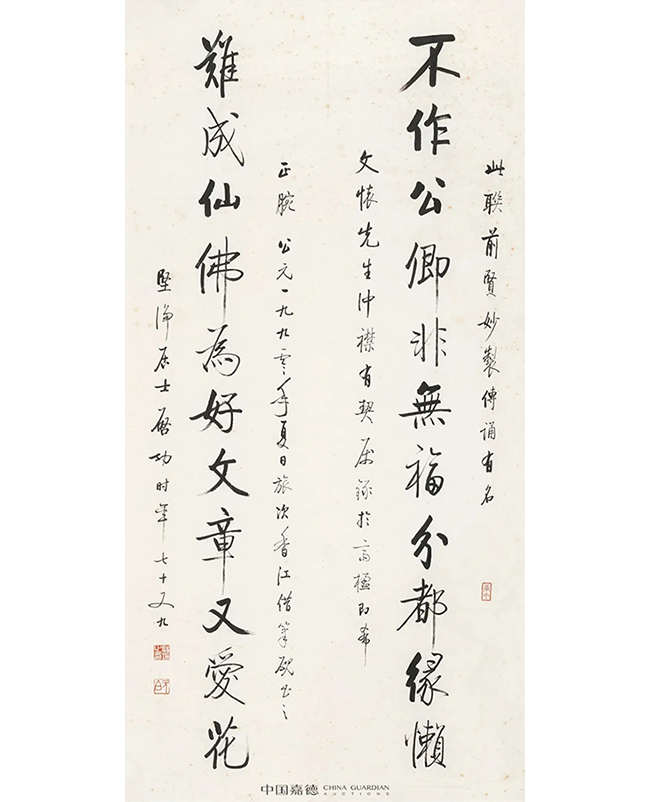 此聯前賢妙製傳誦有名
不作公卿非無福分都緣懶
文懷先生冲襟有契属錄於高楹即希
正腕 公元一九九零年夏日旅次香江借筆硯書之
難成仙佛為好文章又愛花
堅淨居士啟功时年七十又九
中国嘉德 CHINA GUARDIAN
AUCTIONS